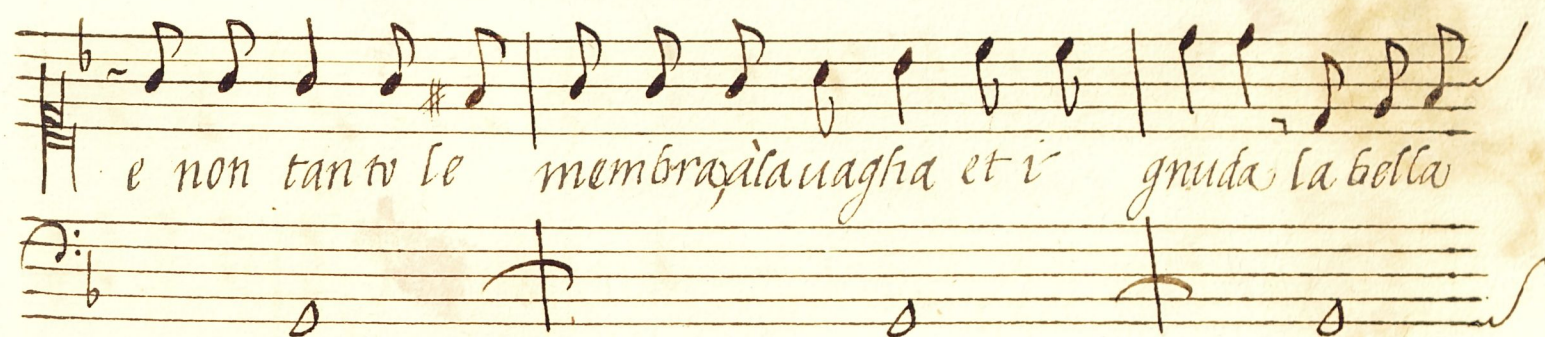 e non tanto le membra, àla uagha et i gnuda la bella